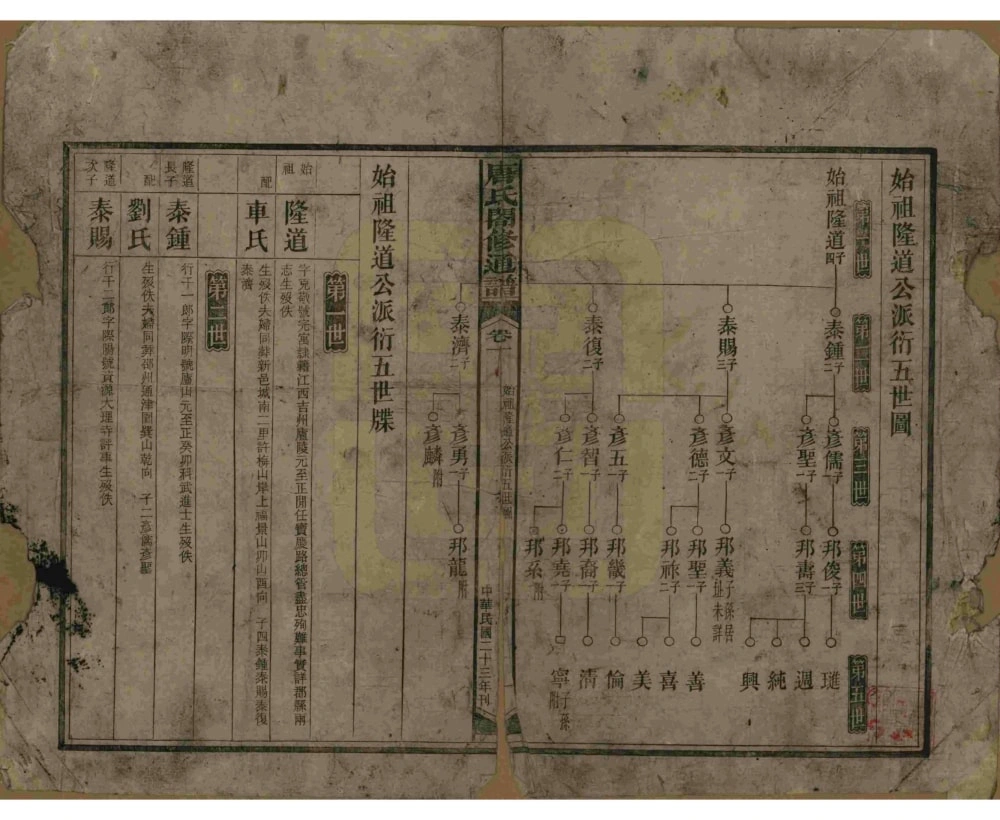 始祖隆道公派衍五世圖
第一世
始祖隆道 四子
第二世
泰鍾 二子
泰賜 三子
泰復 二子
泰濟 二子
第三世
彥儒 一子
彥聖 一子
彥文 一子
彥德 二子
彥五 一子
彥智 一子
彥仁 二子
彥勇 一子
彥麟 附
第四世
邦俊 一子
邦壽 三子
邦義 子孫居址未詳
邦聖 一子
邦祚 二子
邦畿 一子
邦裔 一子
邦堯 一子
邦系 附
邦龍 附
第五世
璡
週
純
興
善
喜
美
倫
清
寧 子孫附
唐氏閤修通譜
卷一
始祖隆道公派衍五世牒
中華民國二十三年刊
始祖隆道公派衍五世牒
第一世
始祖
隆道
字克 號元 隸籍江西吉州廬陵元至正開任寶慶路總管盡忠殉難事實詳郡縣兩
志生歿佚
配
車氏
生歿佚夫婦同葬新邑城南二里許梅山 上 景山卯山酉向 子四泰鍾泰賜泰復
泰濟
第二世
隆道長子
泰鍾
行千一郎字際明號廬山元至正癸卯科武進士生歿佚
配
劉氏
生歿佚夫婦同葬邵州通津圍巽山乾向 子二彥儒彥聖
隆道次子
泰賜
行千二郎字際陽號 大理寺評事生歿佚